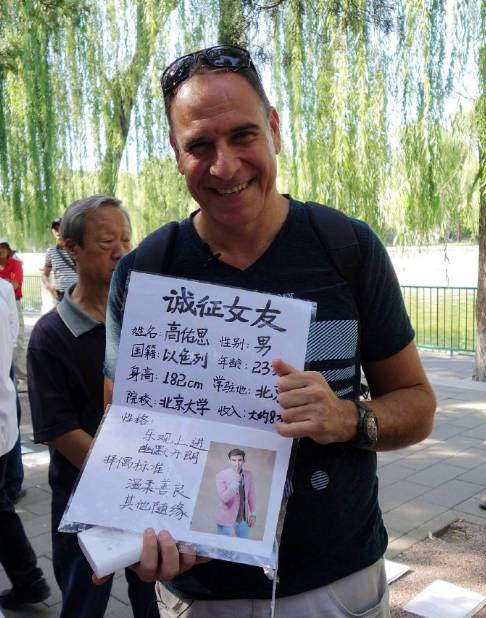 诚征女友
姓名: 高佑思 性别: 男
国籍: 以色列 年龄: 23
身高: 182cm 常驻地: 北
院校: 北京大学 收入: 大约8
性格:
乐观上进
幽默开朗
择偶标准:
温柔善良
其他随缘